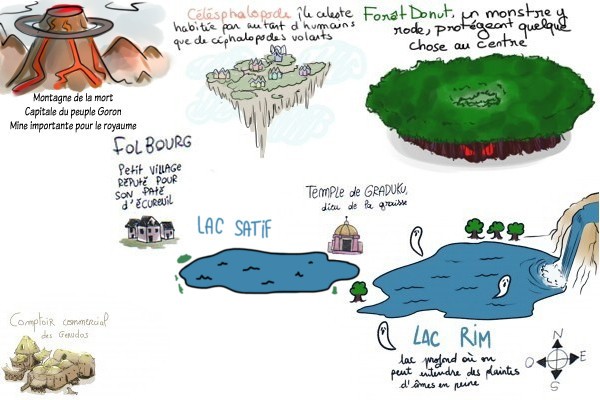 Montagne de la mort
Capitale du peuple Goron
Mine importante pour le royaume
Célésphalopode, île céleste
habitée par autant d'humains
que de céphalopodes volants
Forêt Donut, un monstre y
rode, protégeant quelque
chose au centre
FOLBOURG
Petit village
réputé pour
son pâté
d'écureuil
LAC SATIF
Temple de GRADUKU,
dieu de la graisse
Comptoir commercial
des Gerudos
LAC RIM
lac profond où on
peut entendre des plaintes
d'âmes en peine
N
O
E
S